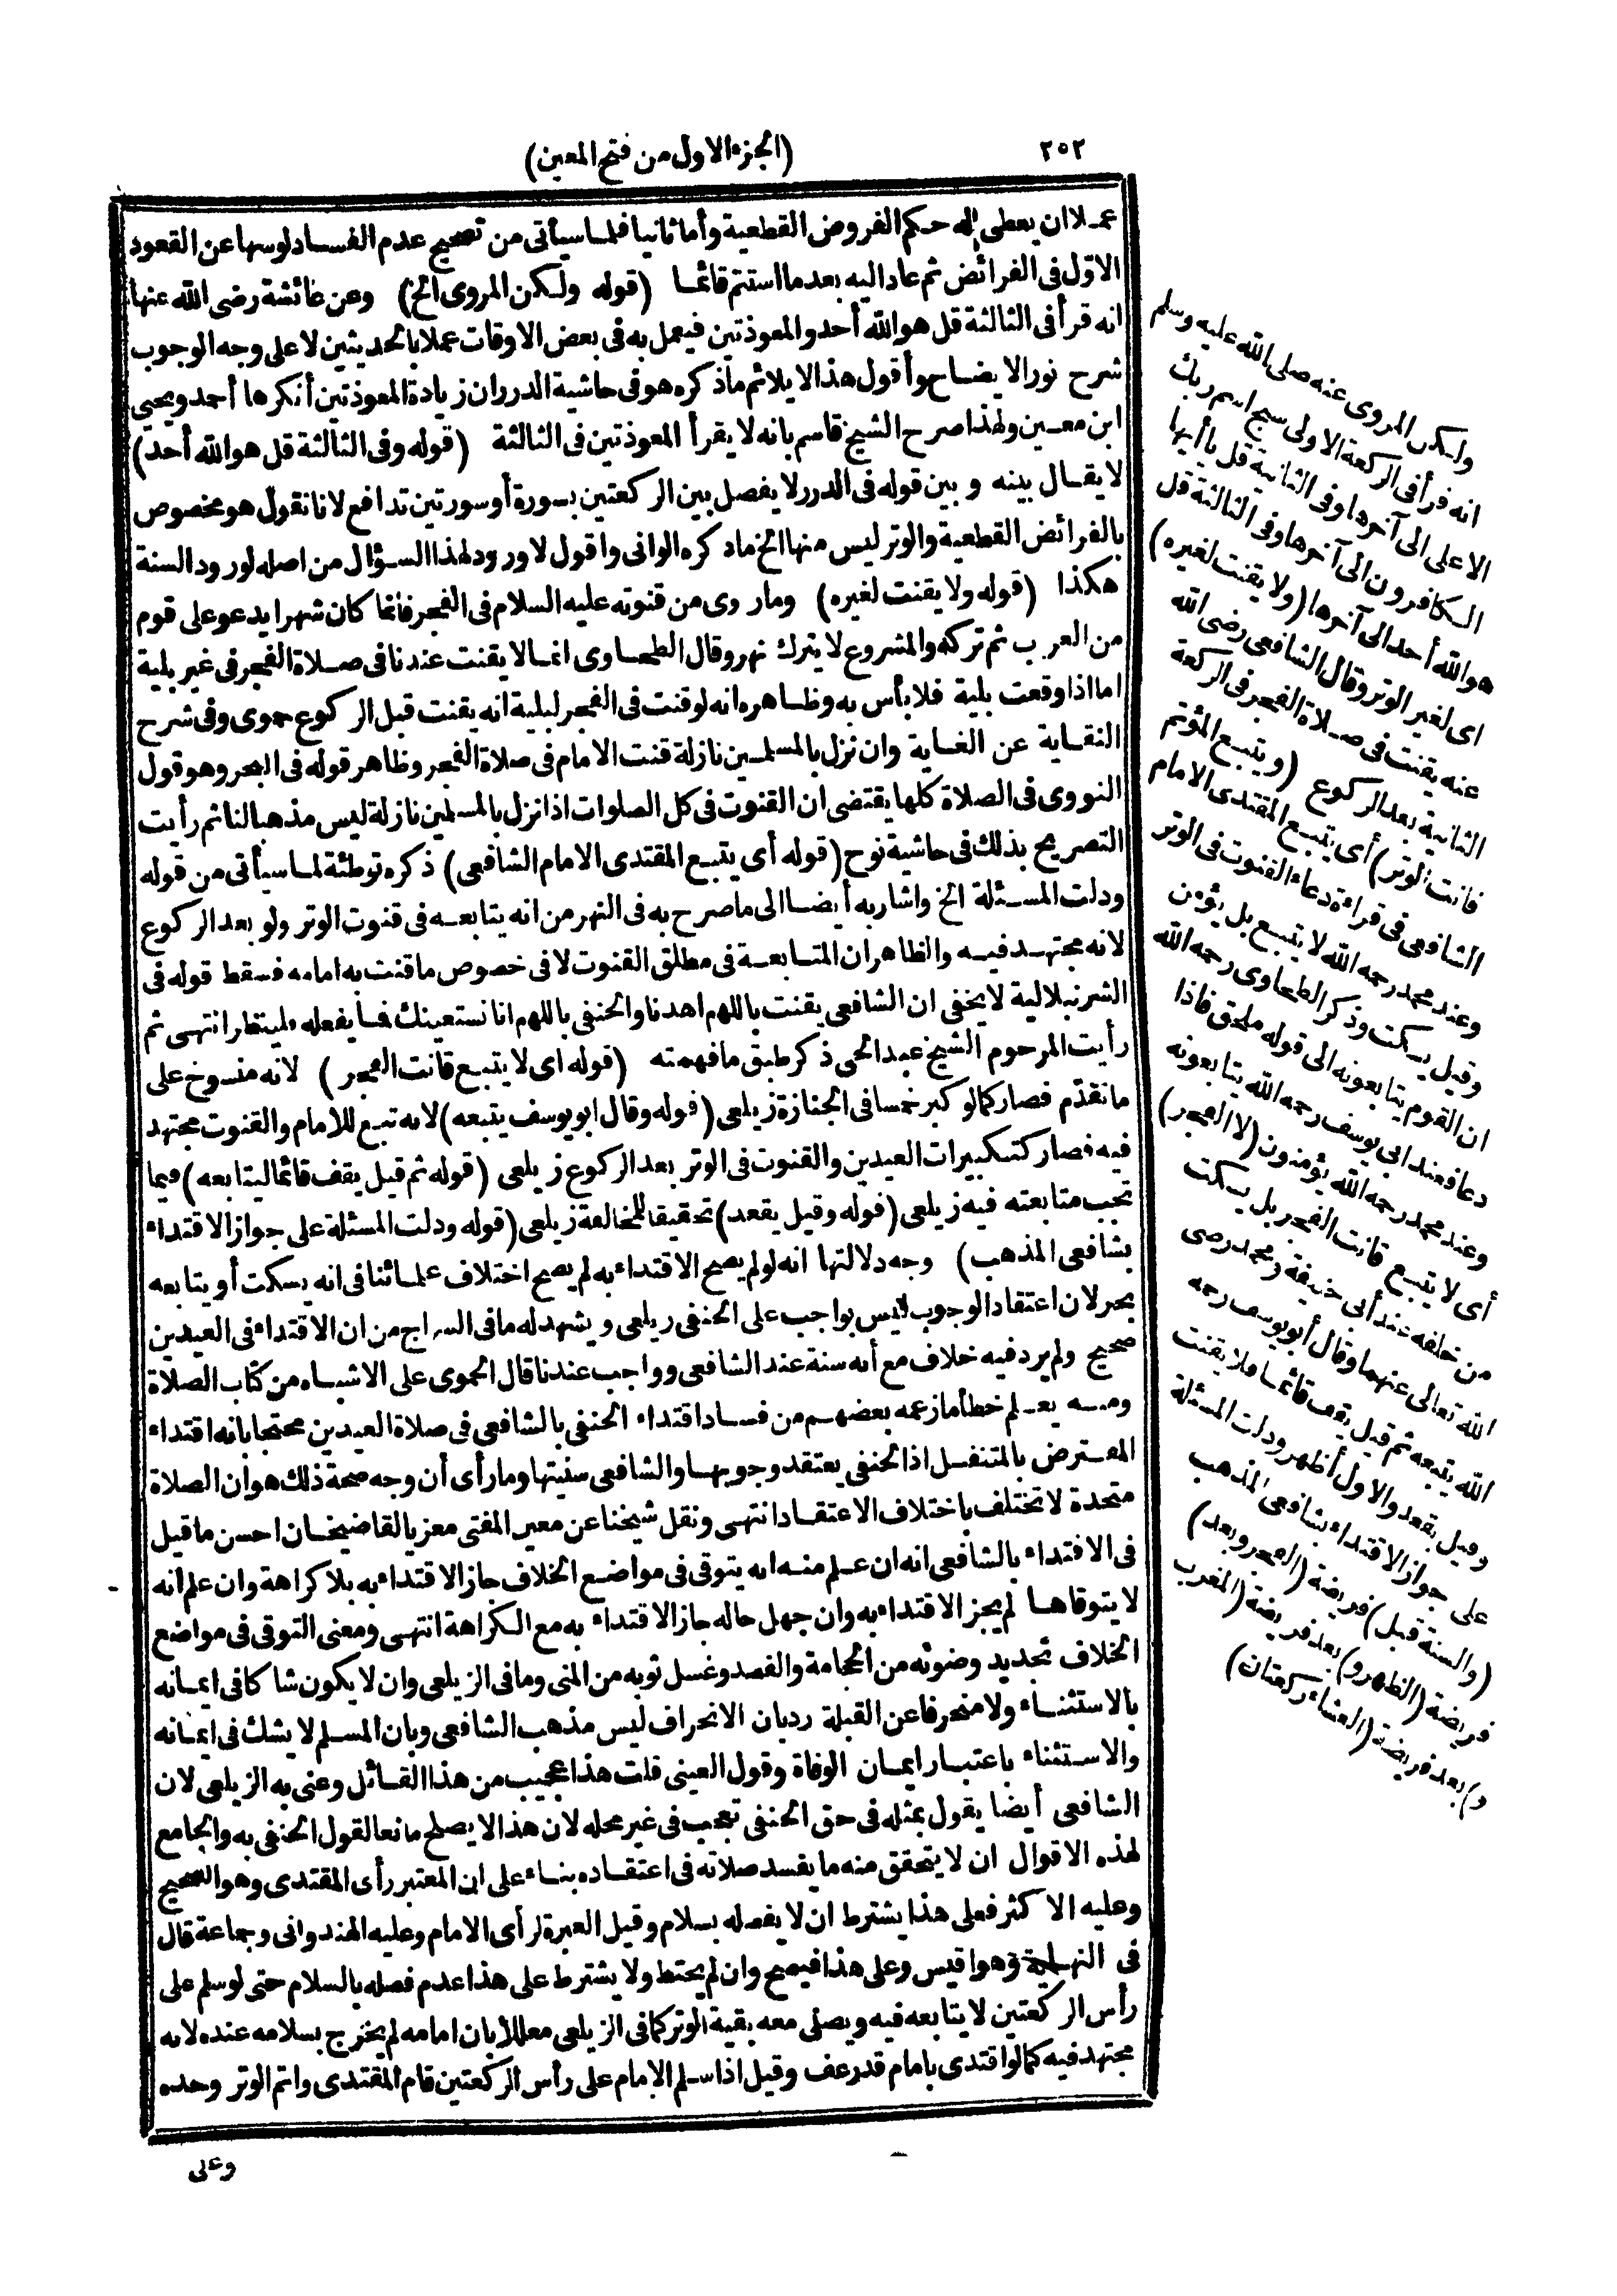 ٢٥٢
(الجزء الاول من فتح المعين)
عملا ان يعطى له حكم الفروض القطعية وأما ثانيا فلما سيأتى من تصحيح عدم الفساد لو سها عن القعود
الاوّل فى الفرائض ثم عاد اليه بعد ما استتم قائما (قوله ولكن المروى الخ) وعن عائشة رضى الله عنها
انه قرأ فى الثالثة قل هو الله أحد والمعوذتين فيعمل به فى بعض الاوقات عملا بالحديثين لا على وجه الوجوب
شرح نور الايضاح وأقول هذا لا يلائم ماذكره هو فى حاشية الدرر ان زيادة المعوذتين أنكرها أحمد ويحيى
ابن معين ولهذا صرح الشيخ قاسم بانه لا يقرأ المعوذتين فى الثالثة (قوله وفى الثالثة قل هو الله أحد)
لا يقال بينه وبين قوله فى الدرر لا يفصل بين الركعتين بسورة أو سورتين تدافع لانا نقول هو مخصوص
بالفرائض القطعية والوتر ليس منها الخ ماذكره الوانى واقول لا ورود لهذا السؤال من اصله لورود السنة
هكذا (قوله ولا يقنت لغيره) وما روى من قنوته عليه السلام فى الفجر فانما كان شهرا يدعو على قوم
من العرب ثم تركه والمشروع لا يترك نهر وقال الطحاوى انما لا يقنت عندنا فى صلاة الفجر فى غير بلية
اما اذا وقعت بلية فلا بأس به وظاهره انه لو قنت فى الفجر لبلية انه يقنت قبل الركوع حموى وفى شرح
النقاية عن الغاية وان نزل بالمسلمين نازلة قنت الامام فى صلاة الفجر وظاهر قوله فى البحر وهو قول
النووى فى الصلاة كلها يقتضى ان القنوت فى كل الصلوات اذا نزل بالمسلمين نازلة ليس مذهبا لنا ثم رأيت
التصريح بذلك فى حاشية نوح (قوله أى يتبع المقتدى الامام الشافعى) ذكره توطئة لما سيأتى من قوله
ودلت المسئلة الخ واشار به أيضا الى ما صرح به فى النهر من انه يتابعه فى قنوت الوتر ولو بعد الركوع
لانه مجتهد فيه والظاهر ان المتابعة فى مطلق القنوت لا فى خصوص ما قنت به امامه فسقط قوله فى
الشرنبلالية لا يخفى ان الشافعى يقنت باللهم اهدنا والحنفى باللهم انا نستعينك فما يفعله فلينظر انتهى ثم
رأيت المرحوم الشيخ عبد الحى ذكر طبق ما فهمته (قوله اى لا يتبع قانت الفجر) لانه منسوخ على
ما تقدّم فصار كما لو كبر خمسا فى الجنازة زيلعى (قوله وقال ابو يوسف يتبعه) لانه تبع للامام والقنوت مجتهد
فيه فصار كتكبيرات العيدين والقنوت فى الوتر بعد الركوع زيلعى (قوله ثم قيل يقف قائما ليتابعه) فيما
تجب متابعته فيه زيلعى (قوله وقيل يقعد) تحقيقا للمخالفة زيلعى (قوله ودلت المسئلة على جواز الاقتداء
بشافعى المذهب) وجه دلالتها انه لو لم يصح الاقتداء به لم يصح اختلاف علمائنا فى انه يسكت أو يتابعه
بحر لان اعتقاد الوجوب ليس بواجب على الحنفى زيلعى ويشهد له ما فى السراج من ان الاقتداء فى العيدين
صحيح ولم يرد فيه خلاف مع أنه سنة عند الشافعى وواجب عندنا قال الحموى على الاشباه من كتاب الصلاة
ومنه يعلم خطأ ما زعمه بعضهم من فساد اقتداء الحنفى بالشافعى فى صلاة العيدين محتجا بانه اقتداء
المفترض بالمتنفل اذ الحنفى يعتقد وجوبها والشافعى سنيتها وما رأى أن وجه صحة ذلك هو ان الصلاة
متحدة لا تختلف باختلاف الاعتقاد انتهى ونقل شيخنا عن معين المفتى معزيا لقاضيخان احسن ما قيل
فى الاقتداء بالشافعى انه ان علم منه انه يتوقى فى مواضع الخلاف جاز الاقتداء به بلا كراهة وان علم انه
لا يتوقاها لم يجز الاقتداء به وان جهل حاله جاز الاقتداء به مع الكراهة انتهى ومعنى التوقى فى مواضع
الخلاف تجديد وضوئه من الحجامة والفصد وغسل ثوبه من المنى وما فى الزيلعى وان لا يكون شاكا فى ايمانه
بالاستثناء ولا منحرفا عن القبلة رد بان الانحراف ليس مذهب الشافعى وبان المسلم لا يشك فى ايمانه
والاستثناء باعتبار ايمان الوفاة وقول العينى قلت هذا عجيب من هذا القائل وعنى به الزيلعى لان
الشافعى أيضا يقول بمثله فى حق الحنفى تعجب فى غير محله لان هذا لا يصلح مانعا لقول الحنفى به والجامع
لهذه الاقوال ان لا يتحقق منه ما يفسد صلاته فى اعتقاده بناء على ان المعتبر رأى المقتدى وهو الصحيح
وعليه الاكثر فعلى هذا يشترط ان لا يفصله بسلام وقيل العبرة لرأى الامام وعليه الهندوانى وجماعة قال
فى النهاية وهو اقيس وعلى هذا فيصح وان لم يحتط ولا يشترط على هذا عدم فصله بالسلام حتى لو سلم على
رأس الركعتين لا يتابعه فيه ويصلى معه بقية الوتر كما فى الزيلعى معللا بان امامه لم يخرج بسلامه عنده لانه
مجتهد فيه كما لو اقتدى بامام قد رعف وقيل اذا سلم الامام على رأس الركعتين قام المقتدى واتم الوتر وحده
وعلى
ولكن المروى عنه صلى الله عليه وسلم
انه قرأ فى الركعة الاولى سبح اسم ربك
الاعلى الى آخرها وفى الثانية قل يا أيها
الكافرون الى آخرها وفى الثالثة قل
هو الله أحد الى آخرها (ولا يقنت لغيره)
اى لغير الوتر وقال الشافعى رضى الله
عنه يقنت فى صلاة الفجر فى الركعة
الثانية بعد الركوع (ويتبع المؤتم
قانت الوتر) أى يتبع المقتدى الامام
الشافعى فى قراءة دعاء القنوت فى الوتر
وعند محمد رحمه الله لا يتبع بل يؤمن
وقيل يسكت وذكر الطحاوى رحمه الله
ان القوم يتابعونه الى قوله ملحق فاذا
دعا فعند ابى يوسف رحمه الله يتابعونه
وعند محمد رحمه الله يؤمنون (لا الفجر)
أى لا يتبع قانت الفجر بل يسكت
من خلفه عند أبى حنيفة ومحمد رضى
الله تعالى عنهما وقال أبو يوسف رحمه
الله يتبعه ثم قيل يقف قائما ولا يقنت
وقيل يقعد والاول أظهر ودلت المسئلة
على جواز الاقتداء بشافعى المذهب
(والسنة قبل) فريضة (الفجر وبعد)
فريضة (الظهر و) بعد فريضة (المغرب
و) بعد فريضة (العشاء ركعتان)